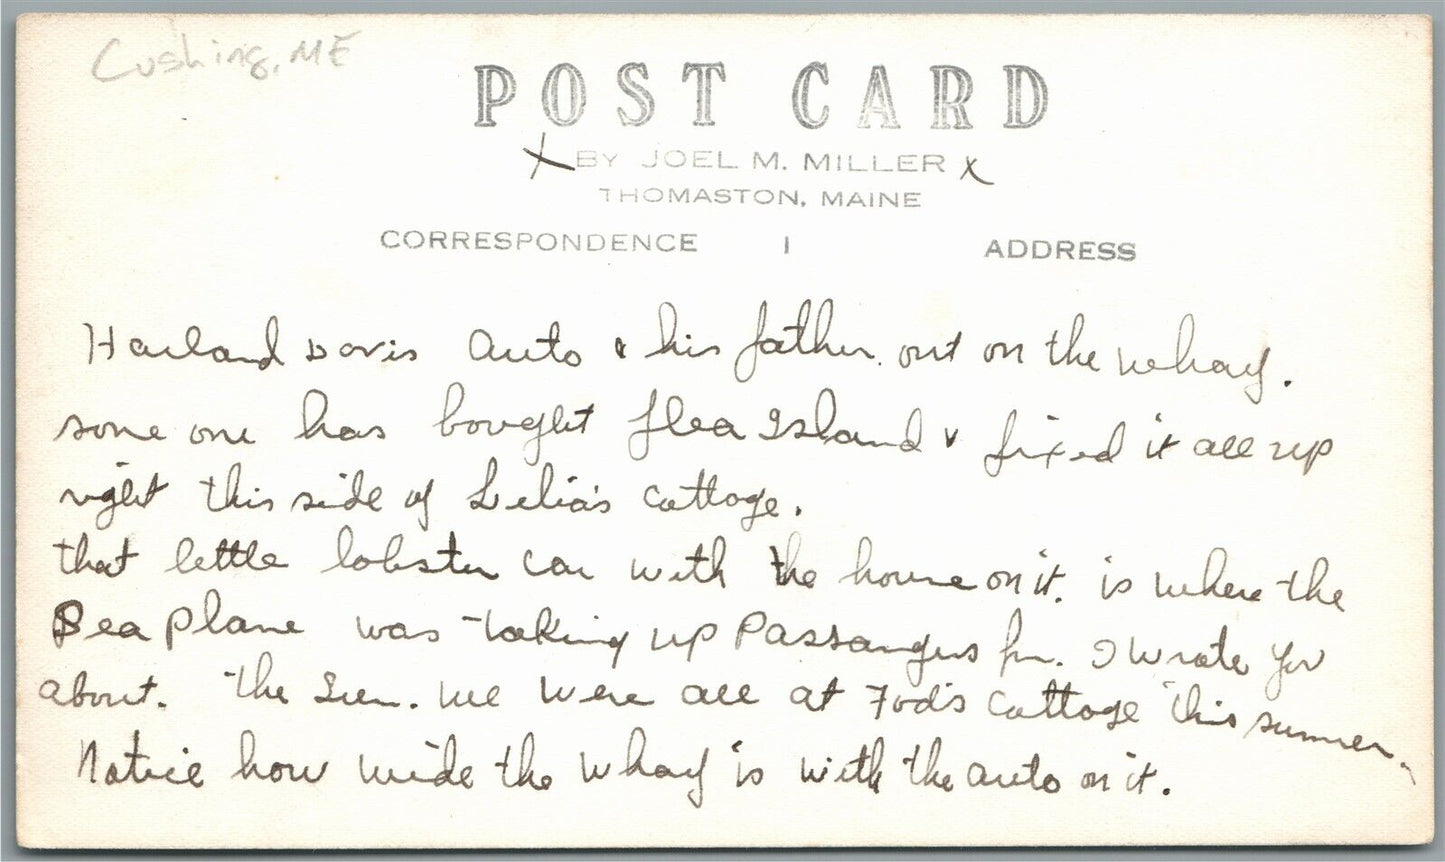 Cushing, ME
POST CARD
x BY JOEL M. MILLER x
THOMASTON, MAINE
CORRESPONDENCE | ADDRESS
Harland Davis Auto & his father. out on the wharf.
some one has bought flea Island & fixed it all up
right this side of Lelia's cottage.
that little lobster car with the house on it. is where the
Sea plane was taking up Passangers fm. I wrote you
about. The Sun. we were all at Tod's cottage this summer.
Notice how wide the wharf is with the auto on it.